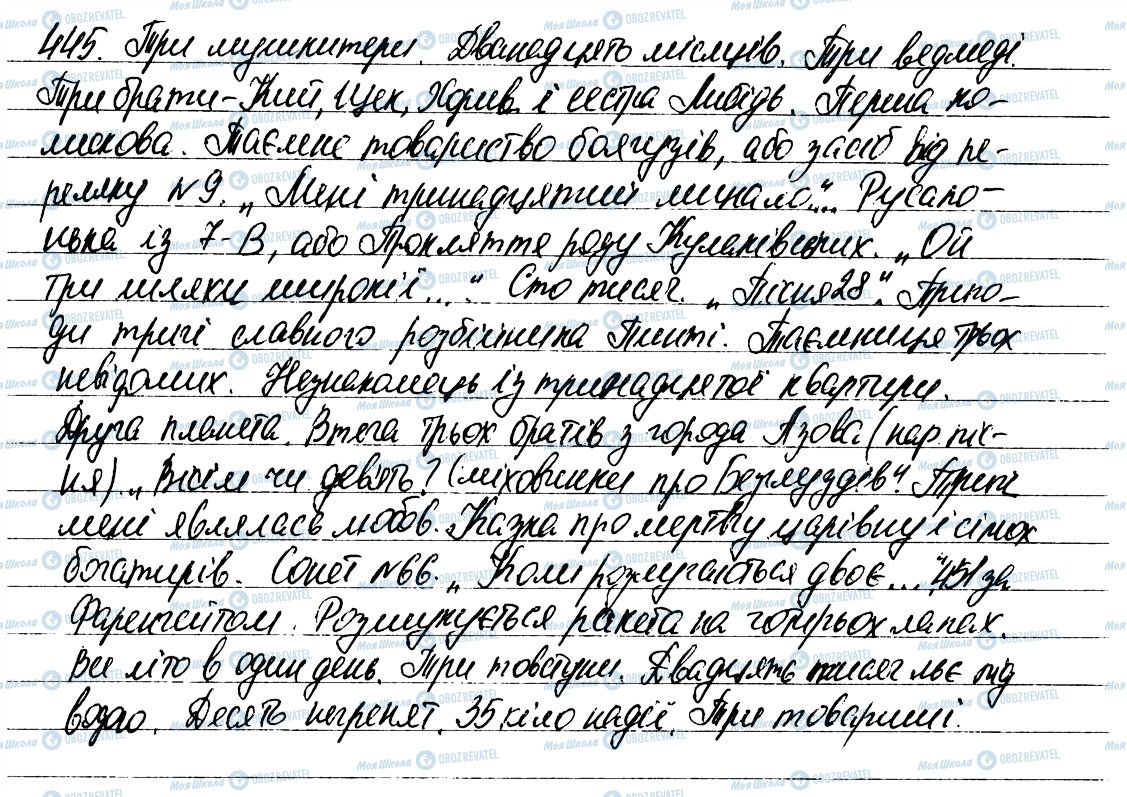 445. Три мушкитери. Дванадцять місяців. Три ведмеді.
Три брати – Кий, Щек, Хорив і сестра Либідь. Перша ко-
лискова. Таємне товариство боягузів, або засіб від пе-
реляку №9. „Мені тринадцятий минало...". Русало-
нька із 7-В, або Прокляття роду Кулаківських. „Ой
три шляхи широкії..." Сто тисяч. „Пісня 28". Приго-
ди тричі славного розбійника Пинті. Таємниця трьох
невідомих. Незнакомець із тринадцятої квартири.
Друга планета. Втеча трьох братів з города Азова. (нар. піс-
ня) „Вісім чи дев'ять? (міховинки про Безмуздів". Тричі
мені являлась любов. „Казка про мертву царівну і сімох
богатирів. Сонет №66. „Коли розлучаються двоє..." „451 за
Фаренгейтом. Розшукується ракета на чотирьох лапах.
Все літо в один день. Три товстуни. Двадцять тисяч льє під
водою. Десять негренят. 35 кіло надії. Три товариші.